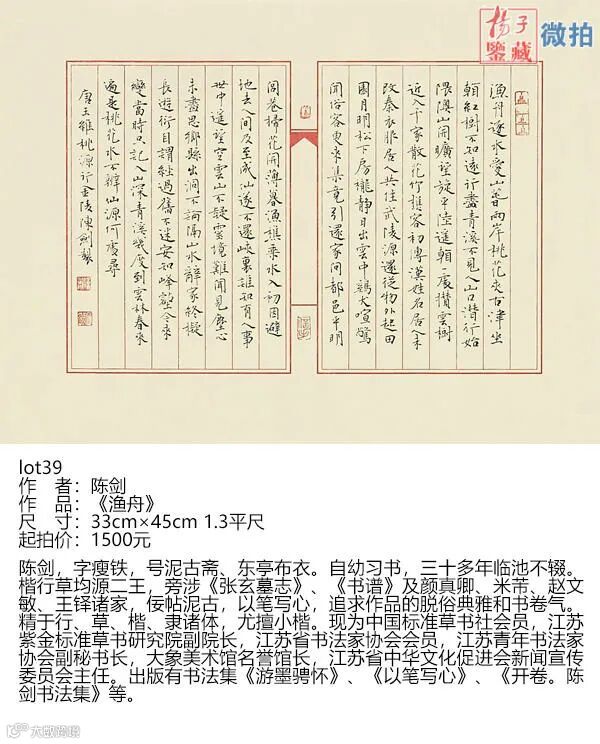 揚子
鑒藏
微拍
漁舟逐水愛山春兩岸桃花夾古津坐
看紅樹不知遠行盡青溪不見人山口潛行始
隈隩山開曠望旋平陸遥看一處攢雲樹
近入千家散花竹樵客初傳漢姓名居人未
改秦衣服居人共住武陵源還從物外起田
園月明松下房櫳静日出雲中鷄犬喧驚
聞俗客爭來集竟引還家問都邑平明
閭巷掃花開薄暮漁樵乘水入初因避
地去人間及至成仙遂不還峽裏誰知有人事
世中遥望空雲山不疑靈境難聞見塵心
未盡思鄉縣出洞不論隔山水辭家終擬
長遊衍自謂經過舊不迷安知峰壑今來
變當時只記入山深青溪幾度到雲林春來
遍是桃花水不辨仙源何處尋
唐王維桃源行金陵陳劍製
lot39
作 者：陈剑
作 品：《渔舟》
尺 寸：33cm×45cm 1.3平尺
起拍价：1500元
陈剑，字瘦铁，号泥古斋、东亭布衣。自幼习书，三十多年临池不辍。
楷行草均源二王，旁涉《张玄墓志》、《书谱》及颜真卿、米芾、赵文
敏、王铎诸家，佞帖泥古，以笔写心，追求作品的脱俗典雅和书卷气。
精于行、草、楷、隶诸体，尤擅小楷。现为中国标准草书社会员，江苏
紫金标准草书研究院副院长，江苏省书法家协会会员，江苏青年书法家
协会副秘书长，大象美术馆名誉馆长，江苏省中华文化促进会新闻宣传
委员会主任。出版有书法集《游墨骋怀》、《以笔写心》、《开卷。陈
剑书法集》等。